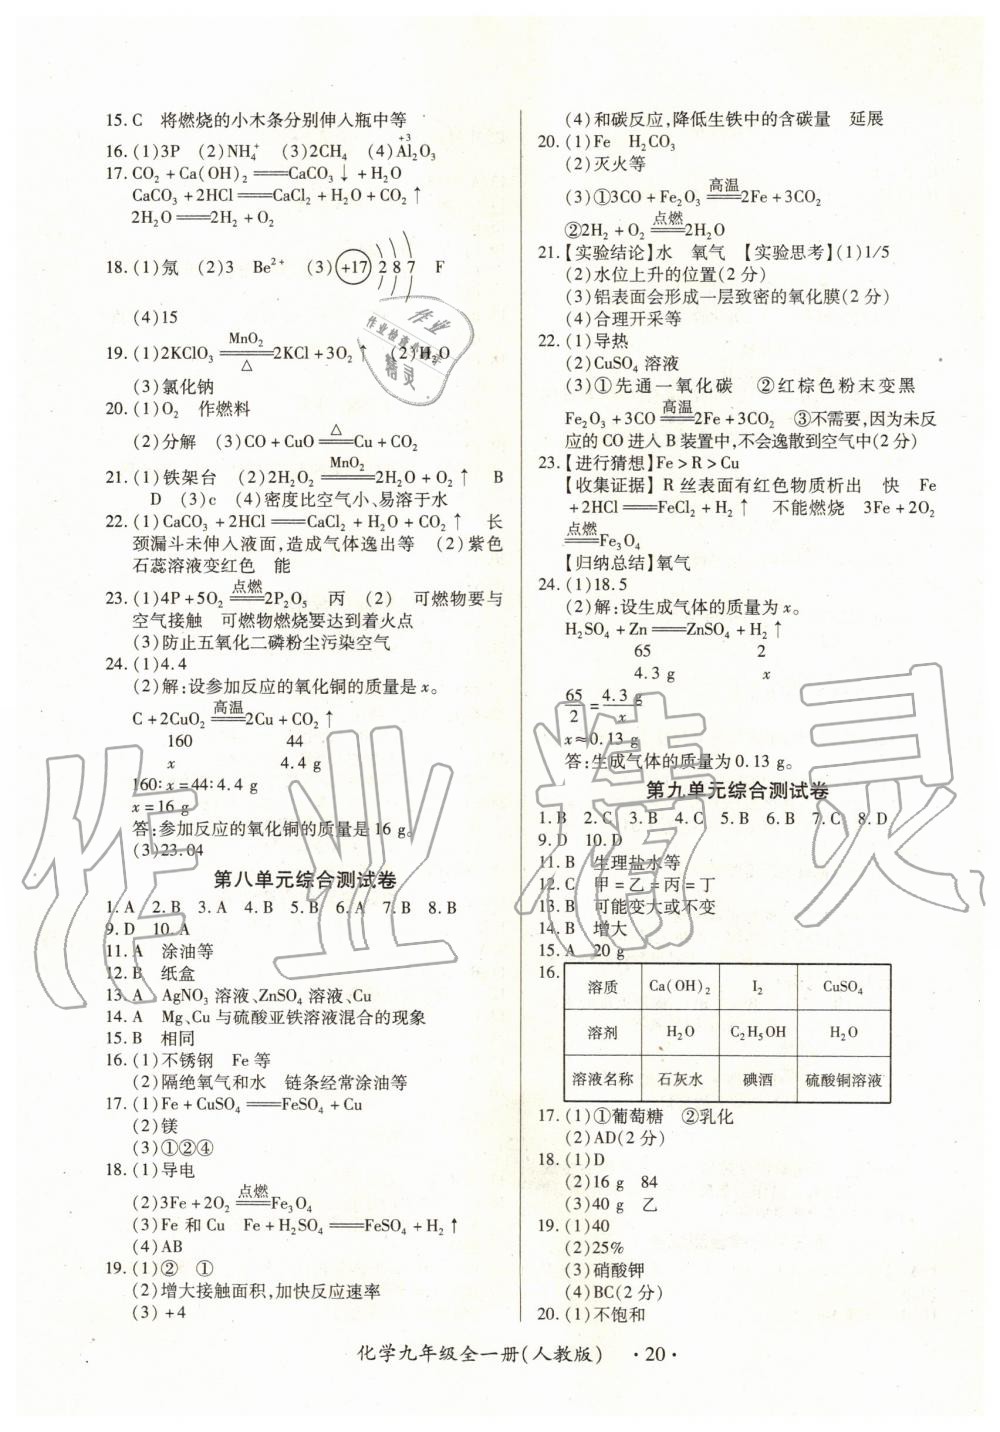 15. C　将燃烧的小木条分别伸入瓶中等
16. (1)3P　(2)NH₄⁺　(3)2CH₄　(4)Al₂O₃（Al上方+3）
17. CO₂+Ca(OH)₂══CaCO₃↓+H₂O
CaCO₃+2HCl══CaCl₂+H₂O+CO₂↑
2H₂O══2H₂+O₂
18. (1)氖　(2)3　Be²⁺　(3)(+17) 2 8 7　F
(4)15
19. (1)2KClO₃ ══(MnO₂/△) 2KCl+3O₂↑　(2)H₂O
(3)氯化钠
20. (1)O₂　作燃料
(2)分解　(3)CO+CuO ══(△) Cu+CO₂
21. (1)铁架台　(2)2H₂O₂ ══(MnO₂) 2H₂O+O₂↑　B
D　(3)c　(4)密度比空气小、易溶于水
22. (1)CaCO₃+2HCl══CaCl₂+H₂O+CO₂↑　长
颈漏斗未伸入液面,造成气体逸出等　(2)紫色
石蕊溶液变红色　能
23. (1)4P+5O₂ ══(点燃) 2P₂O₅　丙　(2)　可燃物要与
空气接触　可燃物燃烧要达到着火点
(3)防止五氧化二磷粉尘污染空气
24. (1)4.4
(2)解:设参加反应的氧化铜的质量是x。
C+2CuO₂ ══(高温) 2Cu+CO₂↑
160　44
x　4.4 g
160∶x=44∶4.4 g
x=16 g
答:参加反应的氧化铜的质量是16 g。
(3)23.04
第八单元综合测试卷
1. A　2. B　3. A　4. B　5. B　6. A　7. B　8. B
9. D　10. A
11. A　涂油等
12. B　纸盒
13. A　AgNO₃溶液、ZnSO₄溶液、Cu
14. A　Mg、Cu与硫酸亚铁溶液混合的现象
15. B　相同
16. (1)不锈钢　Fe等
(2)隔绝氧气和水　链条经常涂油等
17. (1)Fe+CuSO₄══FeSO₄+Cu
(2)镁
(3)①②④
18. (1)导电
(2)3Fe+2O₂ ══(点燃) Fe₃O₄
(3)Fe和Cu　Fe+H₂SO₄══FeSO₄+H₂↑
(4)AB
19. (1)②　①
(2)增大接触面积,加快反应速率
(3)+4
(4)和碳反应,降低生铁中的含碳量　延展
20. (1)Fe　H₂CO₃
(2)灭火等
(3)①3CO+Fe₂O₃ ══(高温) 2Fe+3CO₂
②2H₂+O₂ ══(点燃) 2H₂O
21.【实验结论】水　氧气　【实验思考】(1)1/5
(2)水位上升的位置(2分)
(3)铝表面会形成一层致密的氧化膜(2分)
(4)合理开采等
22. (1)导热
(2)CuSO₄溶液
(3)①先通一氧化碳　②红棕色粉末变黑
Fe₂O₃+3CO ══(高温) 2Fe+3CO₂　③不需要,因为未反
应的CO进入B装置中,不会逸散到空气中(2分)
23.【进行猜想】Fe>R>Cu
【收集证据】R丝表面有红色物质析出　快　Fe
+2HCl══FeCl₂+H₂↑　不能燃烧　3Fe+2O₂
══(点燃) Fe₃O₄
【归纳总结】氧气
24. (1)18.5
(2)解:设生成气体的质量为x。
H₂SO₄+Zn══ZnSO₄+H₂↑
65　2
4.3 g　x
65/2=4.3 g/x
x≈0.13 g
答:生成气体的质量为0.13 g。
第九单元综合测试卷
1. B　2. C　3. B　4. C　5. B　6. B　7. C　8. D
9. D　10. D
11. B　生理盐水等
12. C　甲=乙=丙=丁
13. B　可能变大或不变
14. B　增大
15. A　20 g
16.
溶质　Ca(OH)₂　I₂　CuSO₄
溶剂　H₂O　C₂H₅OH　H₂O
溶液名称　石灰水　碘酒　硫酸铜溶液
17. (1)①葡萄糖　②乳化
(2)AD(2分)
18. (1)D
(2)16 g　84
(3)40 g　乙
19. (1)40
(2)25%
(3)硝酸钾
(4)BC(2分)
20. (1)不饱和
化学九年级全一册(人教版)　·20·
作业精灵
作业
作业检查小助手
精灵